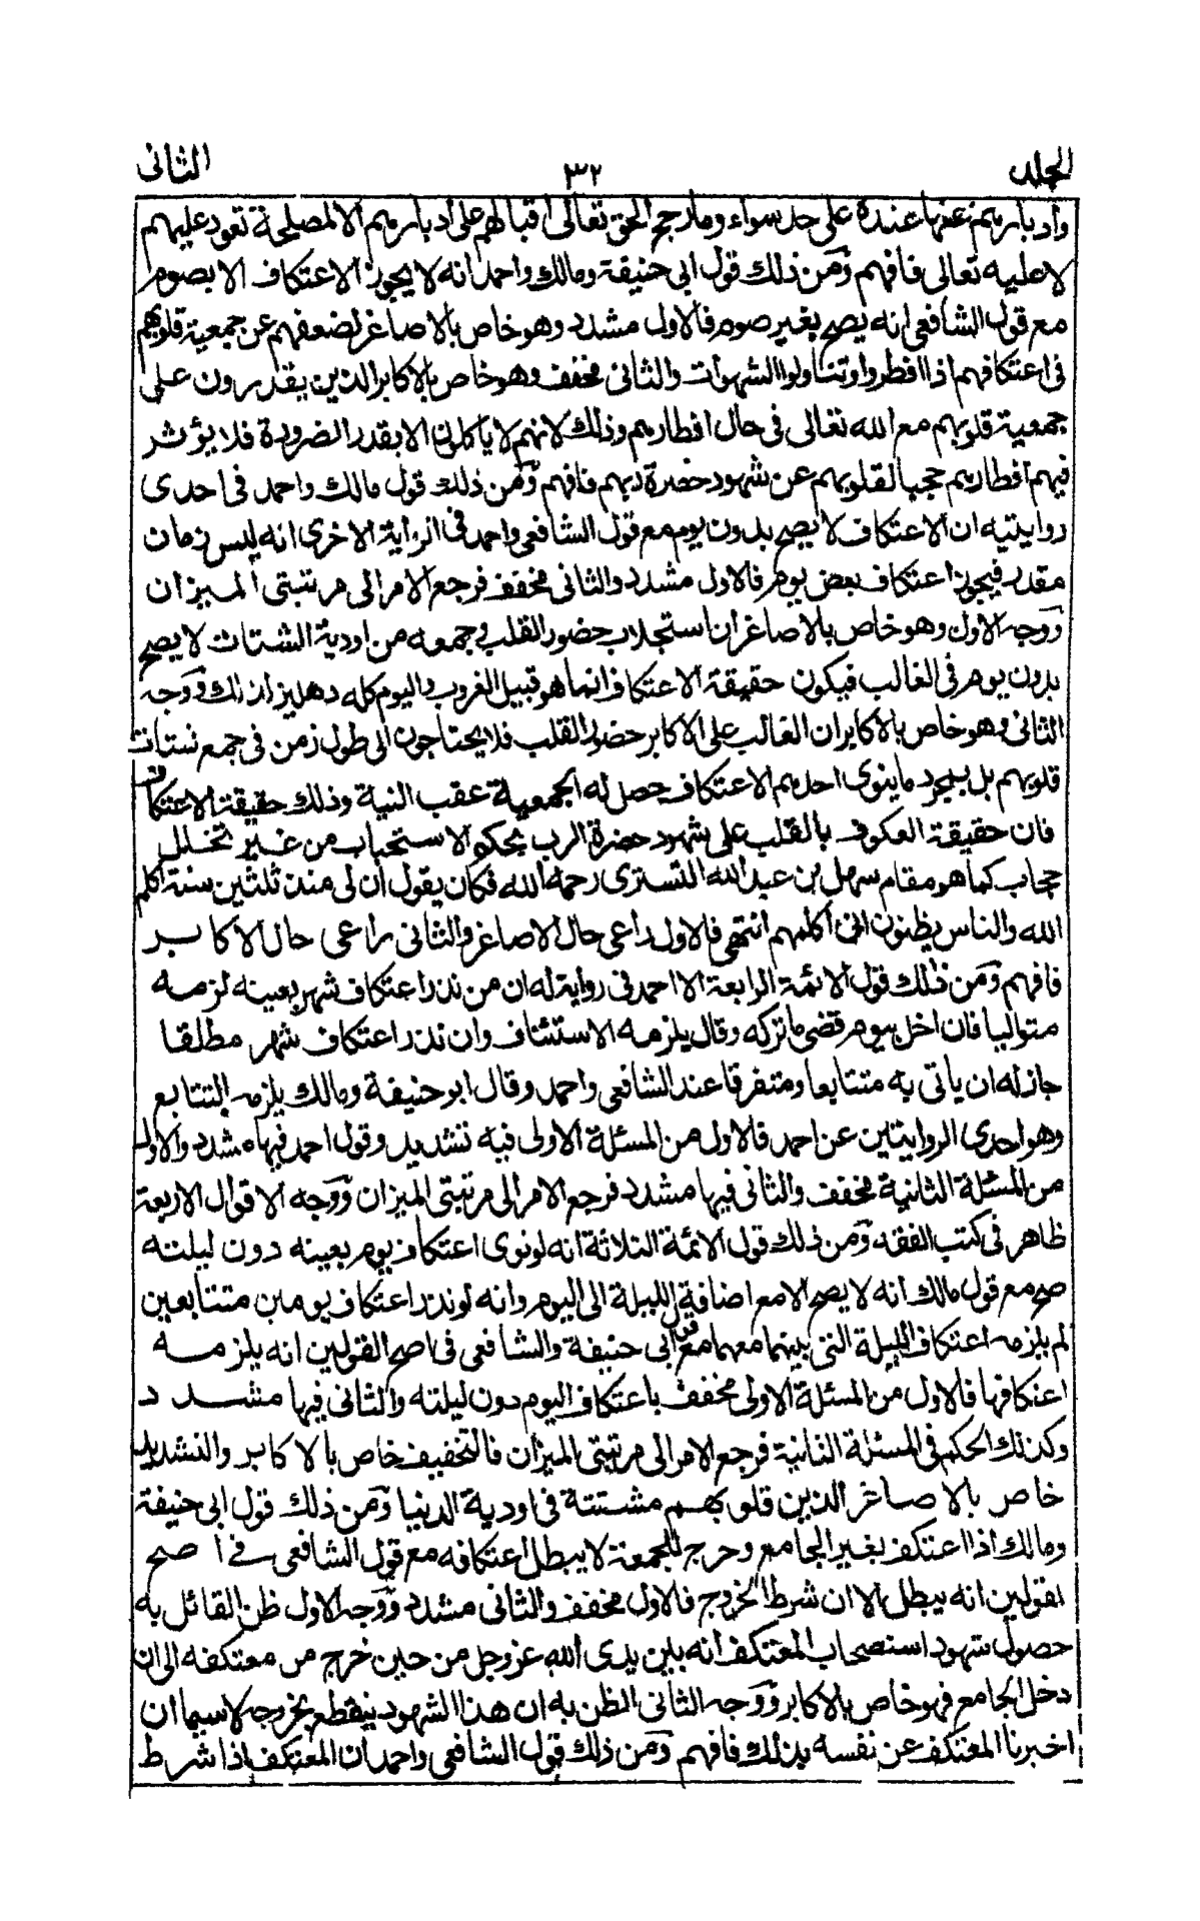 المجلد ٣٢ الثانى
وادبارهم عنها عنده على حد سواء وما رجح الحق تعالى اقبالهم على ادبارهم الا لمصلحة تعود عليهم
لا عليه تعالى فافهم ومن ذلك قول ابى حنيفة ومالك واحمد انه لا يجوز الاعتكاف الا بصوم
مع قول الشافعى انه يصح بغير صوم فالاول مشدد وهو خاص بالاصاغر لضعفهم عن جمعية قلوبهم
فى اعتكافهم اذا افطروا وتناولوا الشهوات والثانى مخفف وهو خاص بالاكابر الذين يقدرون على
جمعية قلوبهم مع الله تعالى فى حال افطارهم وذلك لانهم لا ياكلون الا بقدر الضرورة فلا يؤثر
فيهم افطارهم حجبا لقلوبهم عن شهود حضرة ربهم فافهم ومن ذلك قول مالك واحمد فى احدى
روايتيه ان الاعتكاف لا يصح بدون يوم مع قول الشافعى واحمد فى الرواية الاخرى انه ليس زمان
مقدر فيجوز اعتكاف بعض يوم فالاول مشدد والثانى مخفف فرجع الامر الى مرتبتى الميزان
ووجه الاول وهو خاص بالاصاغر ان استجلاب حضور القلب وجمعه من اودية الشتات لا يصح
بدون يوم فى الغالب فيكون حقيقة الاعتكاف انما هو قبيل الغروب واليوم كله دهليز لذلك ووجه
الثانى وهو خاص بالاكابر ان الغالب على الاكابر حضور القلب فلا يحتاجون الى طول زمن فى جمع شتات
قلوبهم بل بمجرد ما ينوى احدهم الاعتكاف حصل له الجمعية عقب النية وذلك حقيقة الاعتكاف
فان حقيقة العكوف بالقلب على شهود حضرة الرب بحكم الاستحباب من غير تخلل
حجاب كما هو مقام سهل بن عبد الله التسترى رحمه الله فكان يقول ان لى منذ ثلثين سنة اكلم
الله والناس يظنون انى اكلمهم انتهى فالاول راعى حال الاصاغر والثانى راعى حال الاكابر
فافهم ومن ذلك قول الائمة الرابعة الا احمد فى رواية له ان من نذر اعتكاف شهر بعينه لزمه
متواليا فان اخل بيوم قضى ما تركه وقال يلزمه الاستئناف وان نذر اعتكاف شهر مطلقا
جاز له ان ياتى به متتابعا ومتفرقا عند الشافعى واحمد وقال ابو حنيفة ومالك يلزمه التتابع
وهو احدى الروايتين عن احمد فالاول من المسئلة الاولى فيه تشديد وقول احمد فيها مشدد والاول
من المسئلة الثانية مخفف والثانى فيها مشدد فرجع الامر الى مرتبتى الميزان ووجه الاقوال الاربعة
ظاهر فى كتب الفقه ومن ذلك قول الائمة الثلاثة انه لو نوى اعتكاف يوم بعينه دون ليلته
صح مع قول مالك انه لا يصح الا مع اضافة الليلة الى اليوم وانه لو نذر اعتكاف يومين متتابعين
لم يلزمه اعتكاف الليلة التى بينهما معهما مع قول ابى حنيفة والشافعى فى اصح القولين انه يلزمه
اعتكافها فالاول من المسئلة الاولى مخفف باعتكاف اليوم دون ليلته والثانى فيها مشدد
وكذلك الحكم فى المسئلة الثانية فرجع الامر الى مرتبتى الميزان فالتخفيف خاص بالاكابر والتشديد
خاص بالاصاغر الذين قلوبهم مشتتة فى اودية الدنيا ومن ذلك قول ابى حنيفة
ومالك اذا اعتكف بغير الجامع وخرج للجمعة لا يبطل اعتكافه مع قول الشافعى فى اصح
لقولين انه يبطل الا ان شرط الخروج فالاول مخفف والثانى مشدد ووجه الاول ظن القائل به
حصول شهود استصحاب المعتكف انه بين يدى الله عز وجل من حين خرج من معتكفه الى ان
دخل الجامع فهو خاص بالاكابر ووجه الثانى الظن به ان هذا الشهود ينقطع بخروجه لاسيما ان
اخبرنا المعتكف عن نفسه بذلك فافهم ومن ذلك قول الشافعى واحمد ان المعتكف اذا شرط